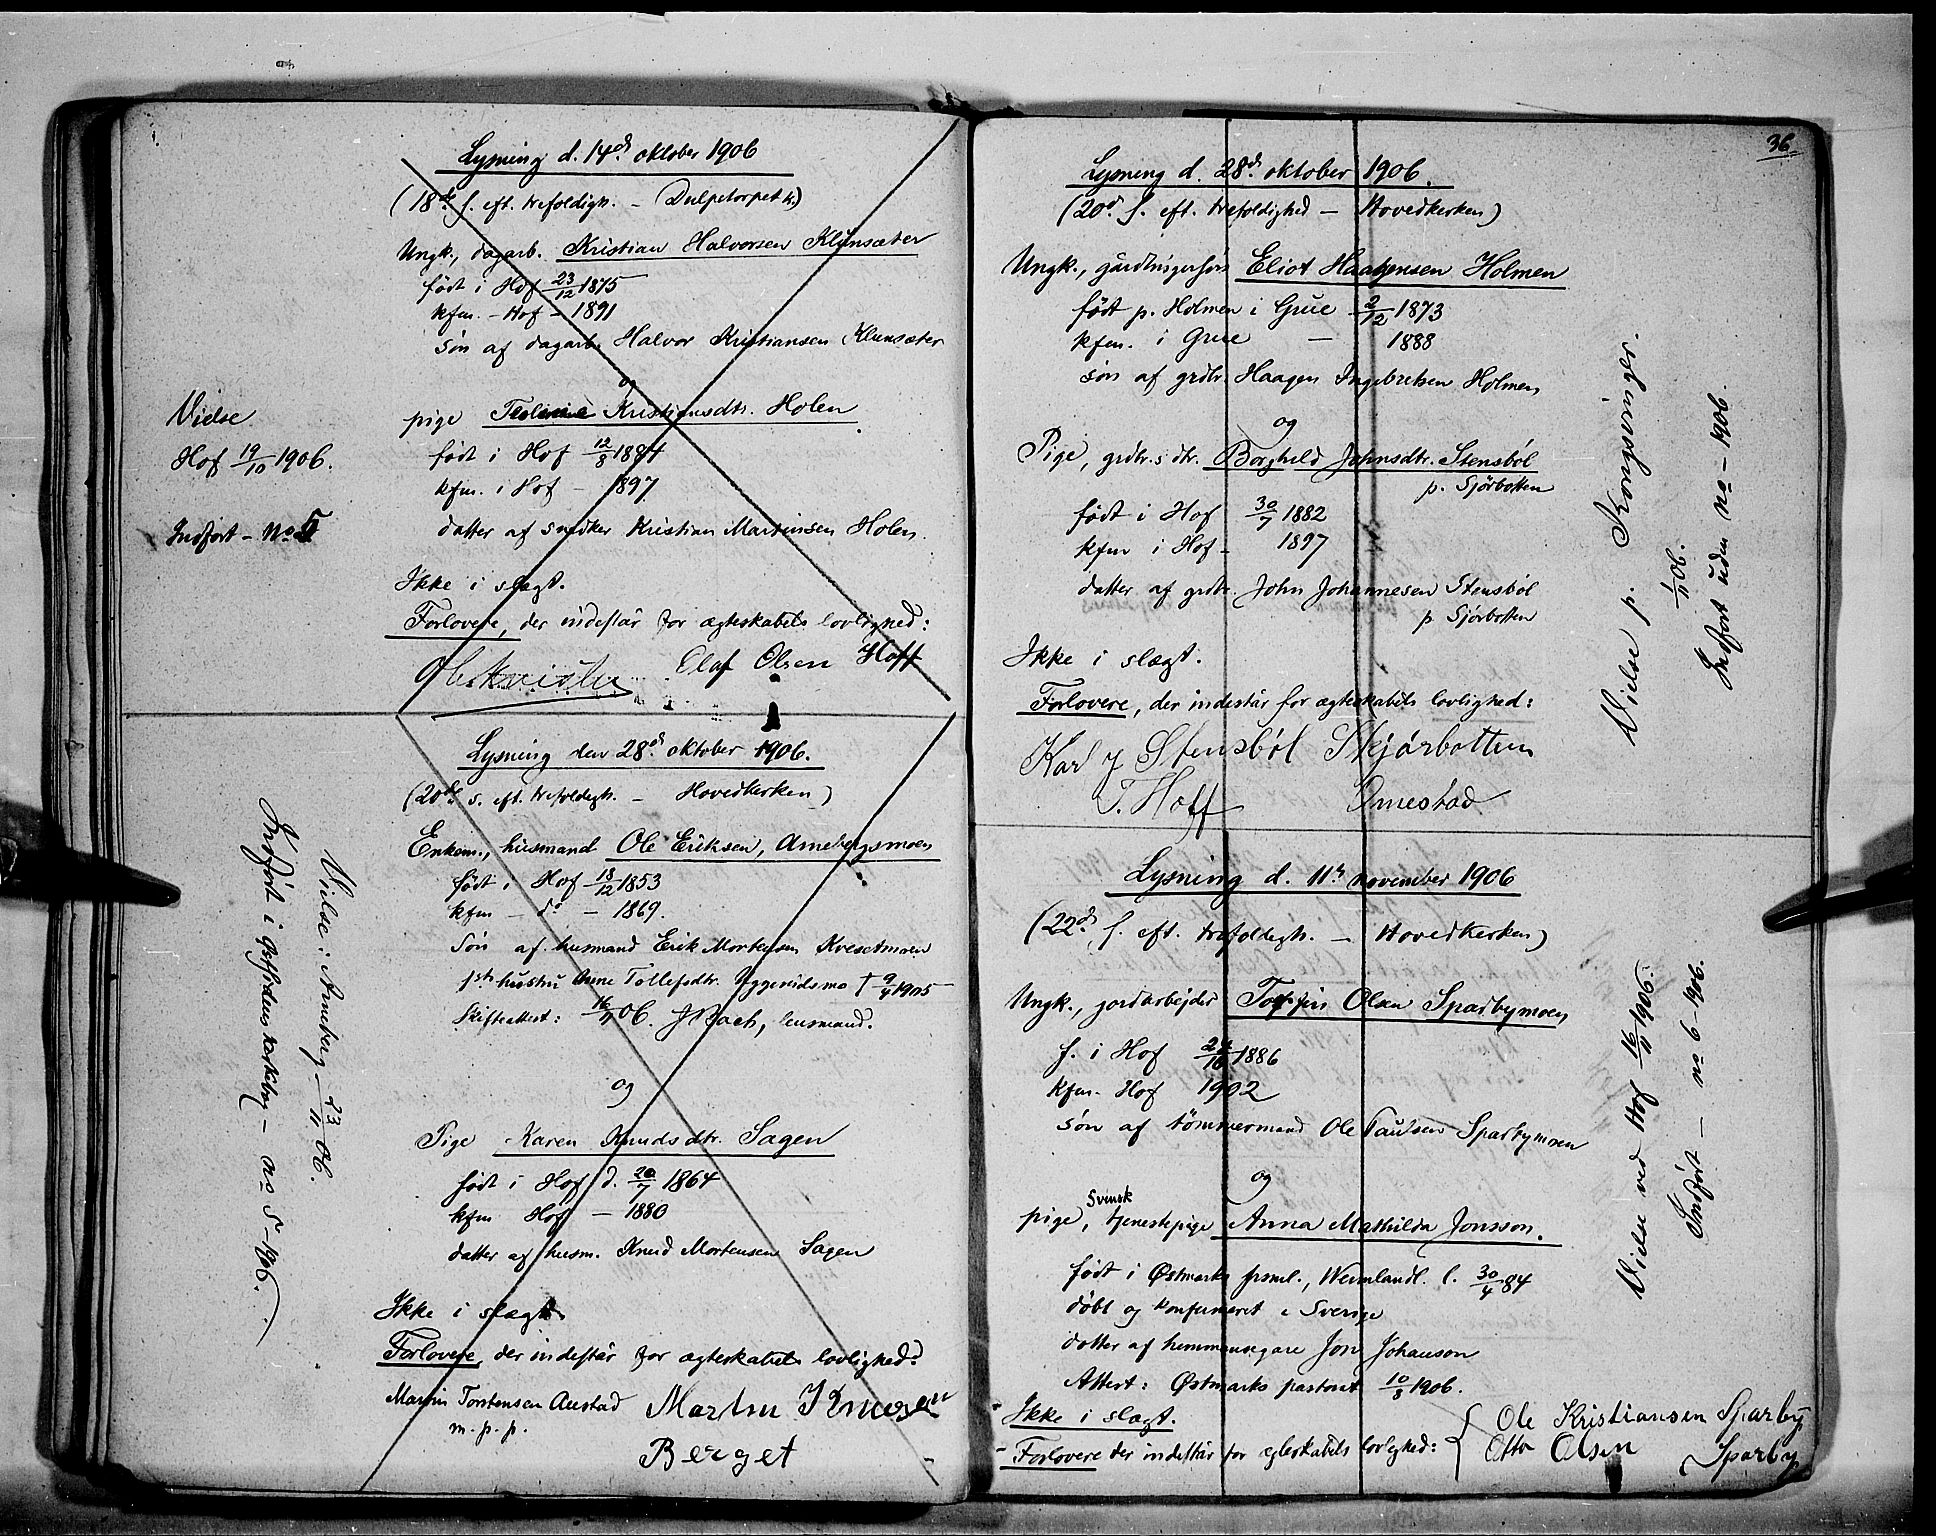 Lysning d. 14de oktober 1906
(18de s. eft. trefoldigh. – Dulpetorpet k.)
Ungk., dagarb. Kristian Halvorsen Klunsæter
født i Hof 23/12 1875
kfm. – Hof – 1891
søn af dagarb. Halvor Kristiansen Klunsæter
og
pige Kristiansdtr. Holen
født i Hof 12/8 1884
kfm. i Hof – 1897
datter af snedker Kristian Martinsen Holen.
Ikke i slægt.
Forlovere, der indestår for ægteskabets lovlighed:
Olaf Olsen Hoff
Vielse
Hof 19/10 1906.
Indført – No 5
Lysning den 28de oktober 1906.
(20de s. eft. trefoldigh. – Hovedkirken)
Enkem., husmand Ole Eriksen, Arnebergsmoen
født i Hof 18/12 1853
kfm – do – 1869.
Søn af husmand Erik Mortensen Kvesetmoen
1ste hustru Anne Tollefsdtr. Uggenidsmo † 9/4 1905
Skifteattest: 06. J Bach, lensmand.
og
Pige Karen Knudsdtr. Sagen
født i Hof d. 20/7 1864
kfm Hof – 1880
datter af husm. Knud Mortensen Sagen
Ikke i slægt
Forlovere, der indestår for ægteskabets lovlighed:
Martin Torstensen Austad
m. p. p.
Martin Knudsen
Berget
Vielse i Arneberg – 23/11 06.
Indført i – no 5 – 1906.
36.
Lysning d. 28de oktober 1906.
(20de s. eft. trefoldighed – Hovedkirken)
Ungk., Eliot Haagensen Holmen
født p. Holmen i Grue 2/12 1873
kfm. i Grue – 1888
søn af grdbr. Haagen Ingebretsen Holmen
og
Pige, grdbr.s dtr. Borghild Johnsdtr. Stensbøl
p. Sjørbotten
født i Hof 30/7 1882
kfm i Hof – 1897
datter af grdbr. John Johannesen Stensbøl
p Sjørbotten
Ikke i slægt.
Forlovere, der indestår for ægteskabets lovlighed:
Karl J Stensbøl Skjørbotten
T. Hoff Arnestad
Vielse p. Kongsvinger.
1/11 06.
Indført uden no – 1906.
Lysning d. 11te november 1906
(22de s. eft. trefoldigh. – Hovedkirken)
Ungk., jordarbejder Olsen Sparbymoen
f. i Hof 1886
kfm. Hof 1902
søn af tømmermand Ole Paulsen Sparbymoen
og
Svensk
pige, tjenestepige Anna Mathilda Jonsson.
født i Østmarks psml., Wermland l. 30/4 84
døbt og konfirmeret i Sverige
datter af hemmansegare Jon Johanson
Attest: Østmarks pastorat 10/8 1906.
Ikke i slægt.
Forlovere der indestår for ægteskabets lovlighed:
Ole Kristiansen Sparby
Otto Olsen Sparby
Vielse ved Hof 16/11 1906.
Indført – no 6 – 1906.